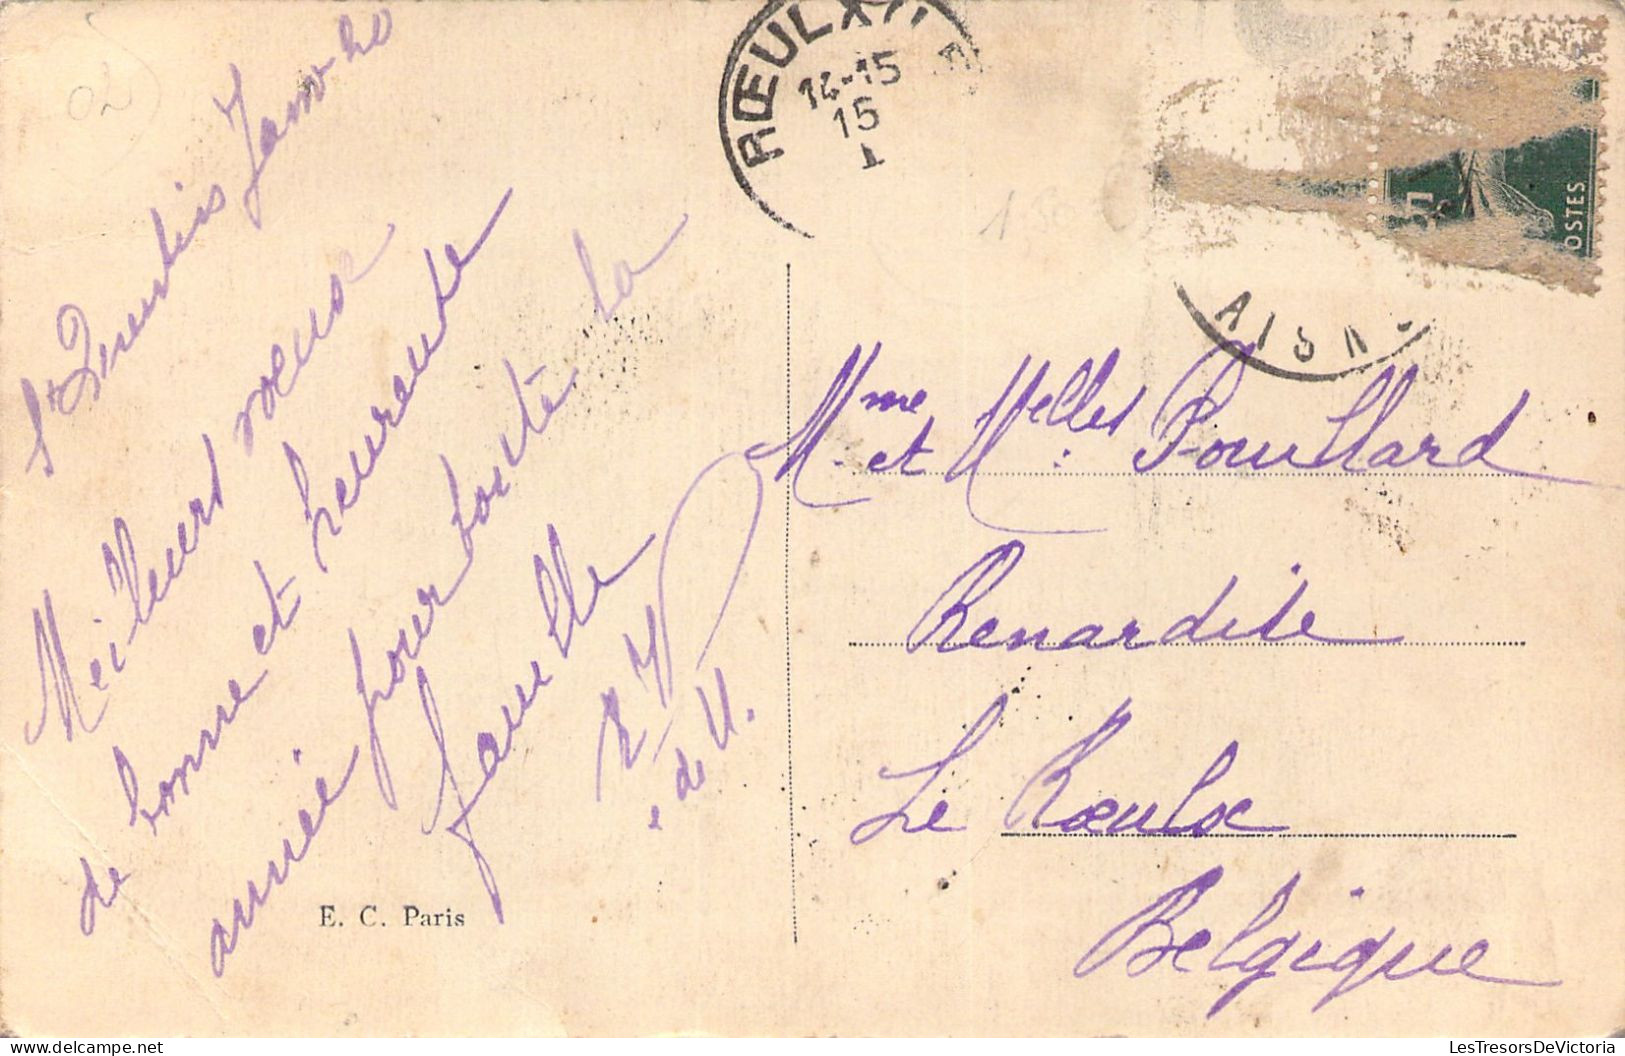 St Quentin
Meilleurs vœux
de bonne et heureuse
année pour toute la
famille
E. C. Paris
RŒULX
14-15
15
1
POSTES
AISN
Mme et Melles Pouillard
Renardise
Le Rœulx
Belgique
02
1.50
LesTresorsDeVictoria